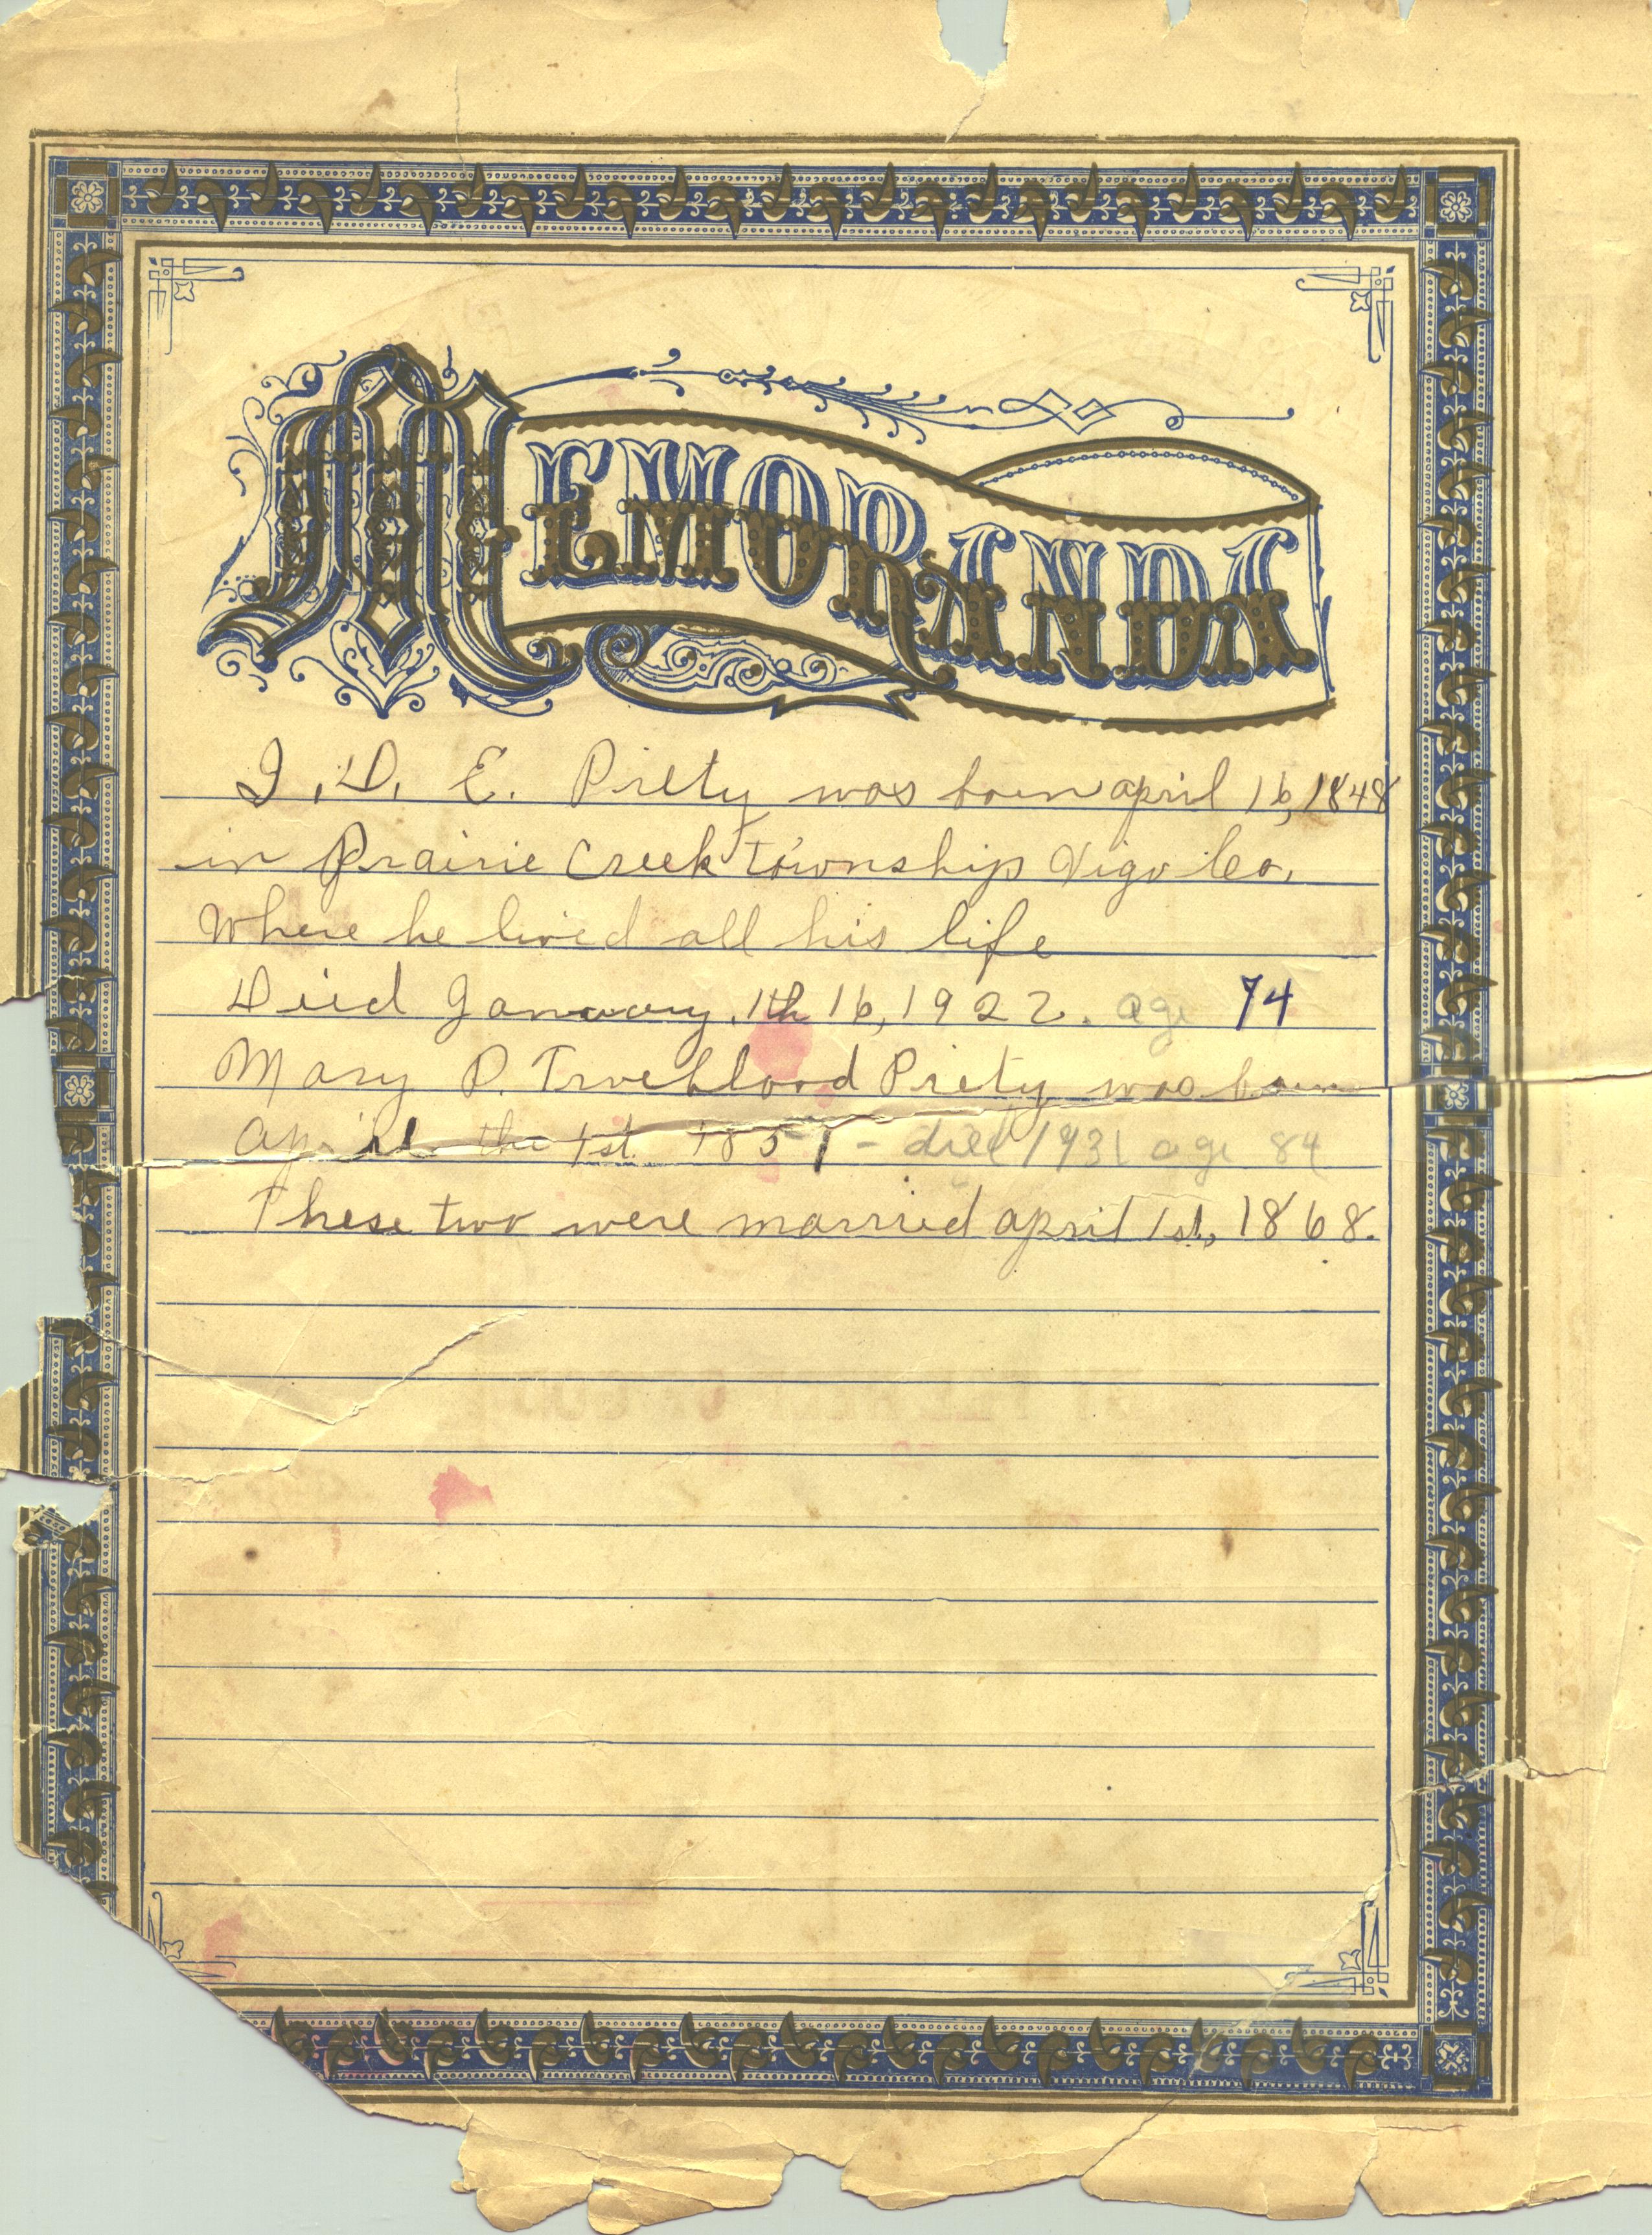 MEMORANDA
I. D. E. Piety was born april 16, 1848
in Prairie Creek township Vigo Co.
Where he lived all his life
Died January. 1th 16, 1922. age 74
Mary P. Trueblood Piety was born
april the 1st 1851 - died 1931 age 84
These two were married april 1st, 1868.